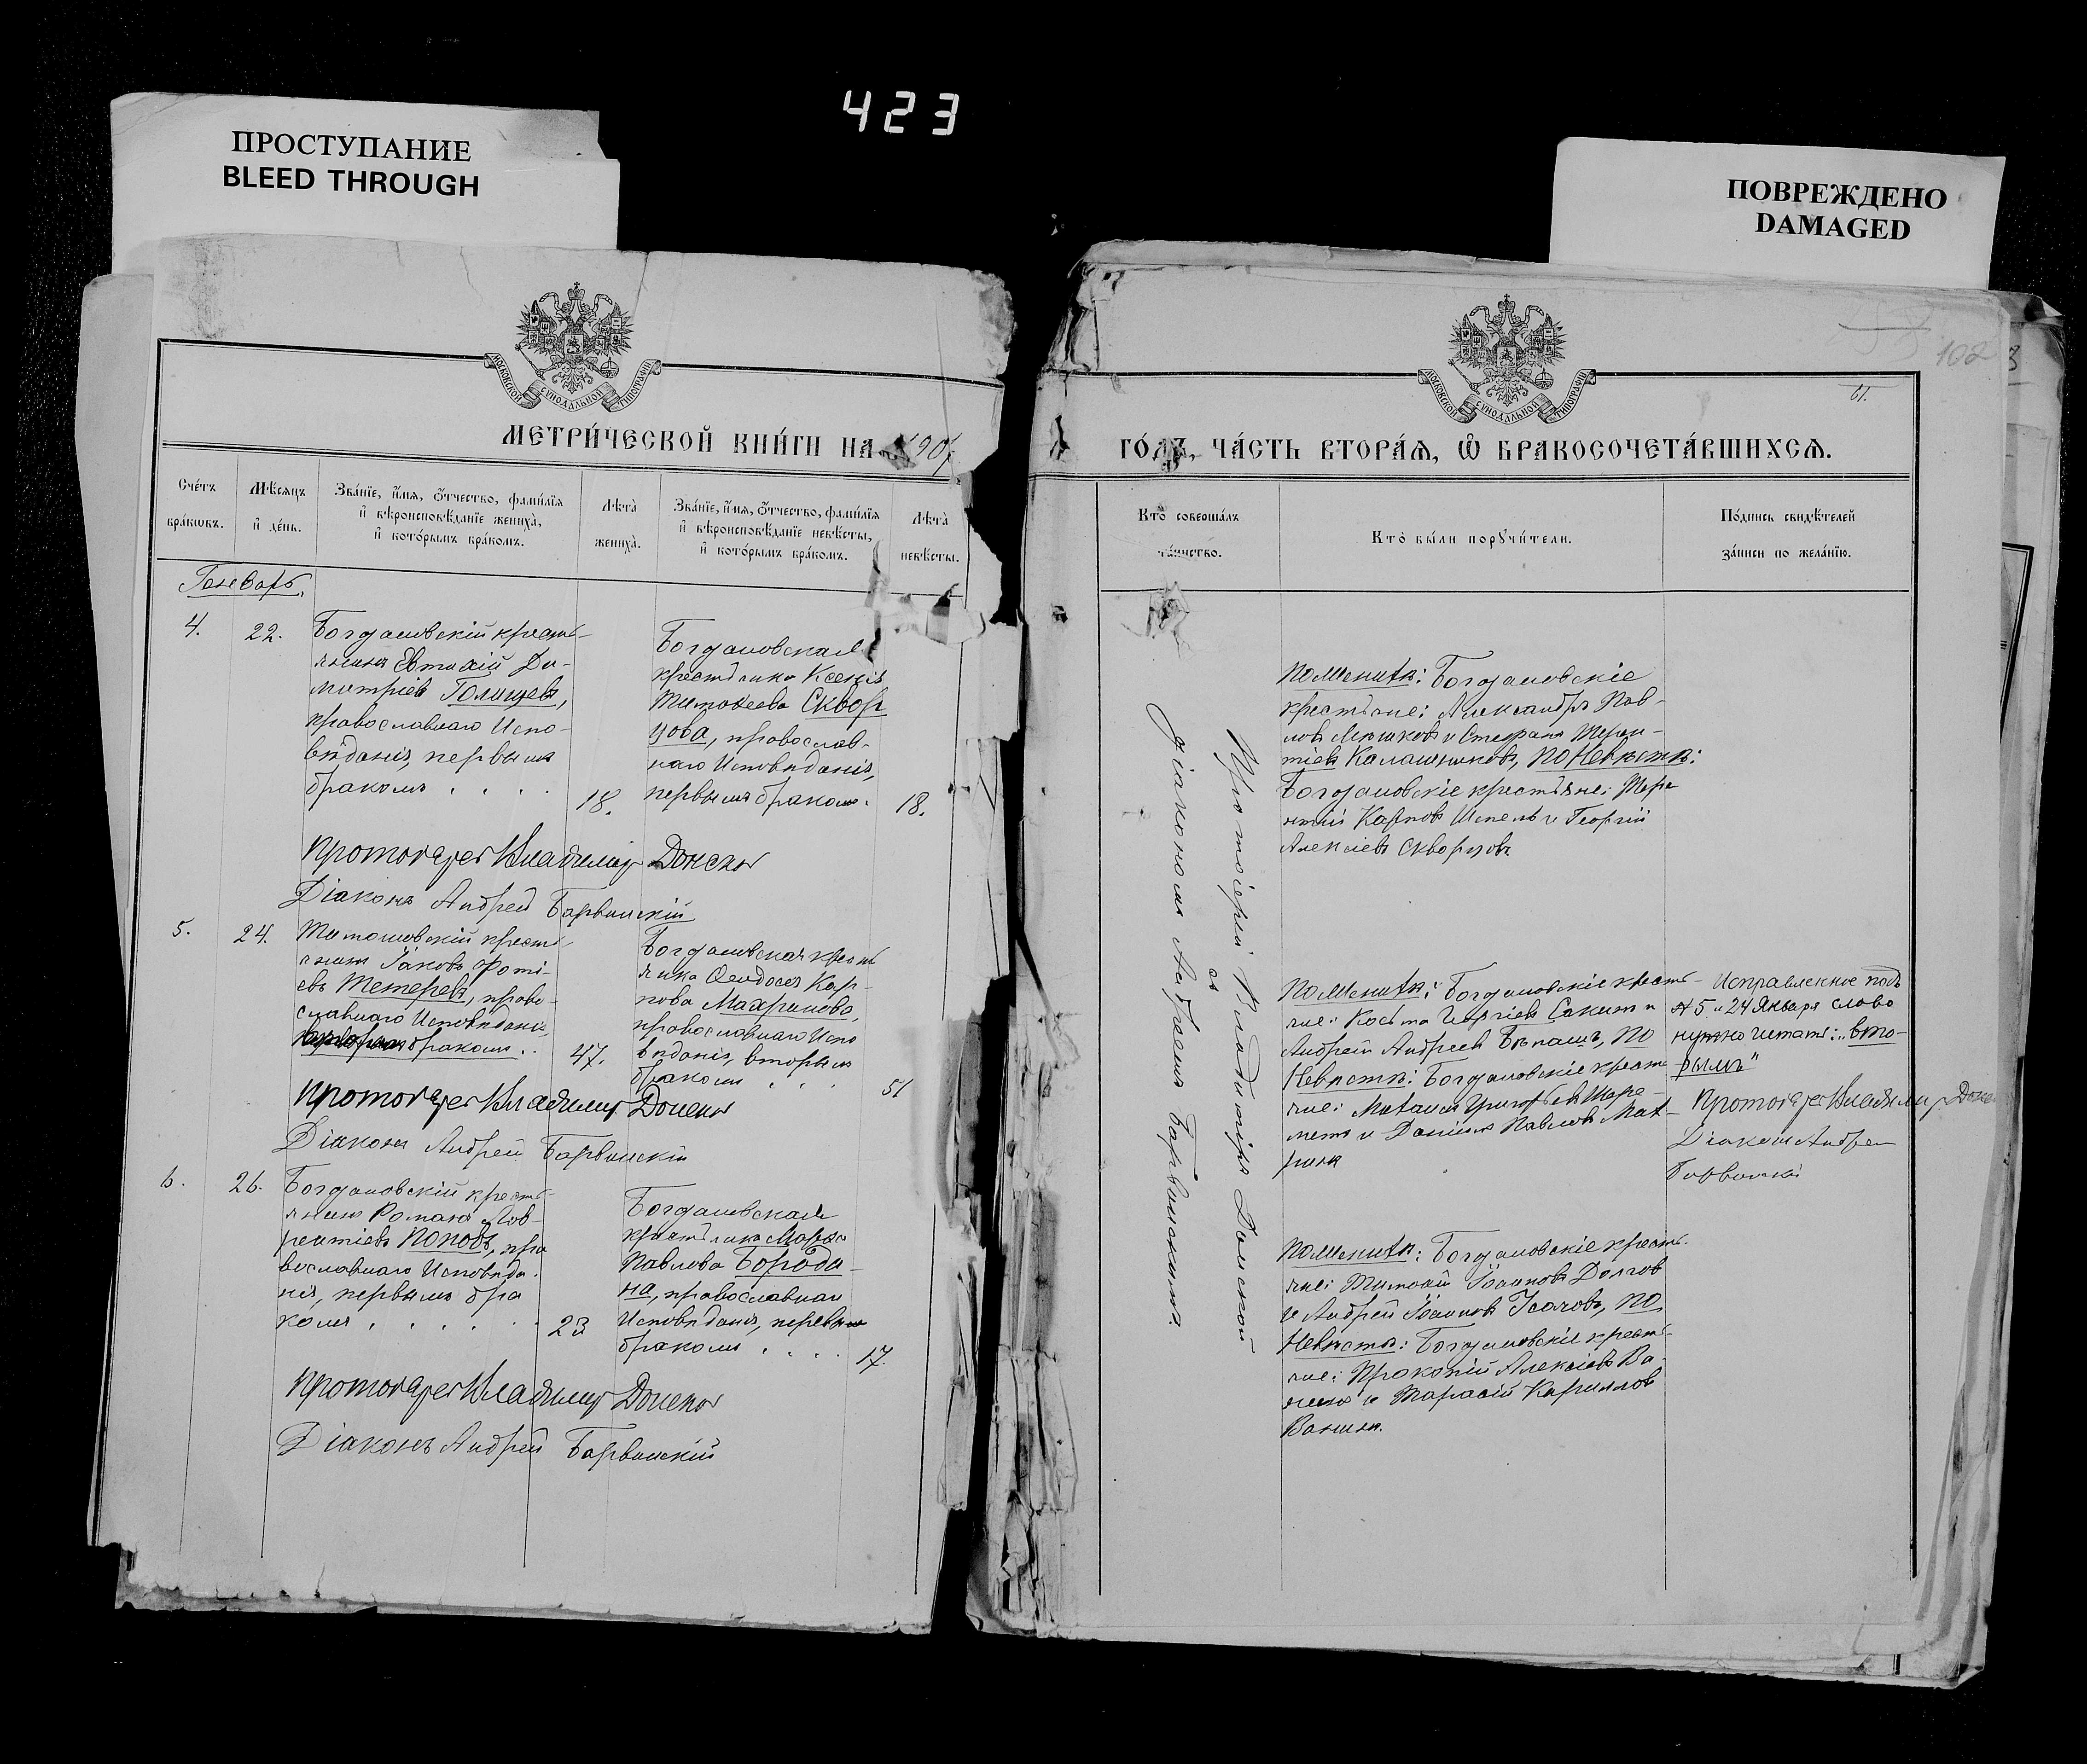 423
ПРОСТУПАНИЕ
BLEED THROUGH
ПОВРЕЖДЕНО
DAMAGED
МОСКОВСКОЙ СѴНОДАЛЬНОЙ ТИПОГРАФІИ
МЕТРИ́ЧЕСКОЙ КНИ́ГИ НА 1907
Сче́тъ
бра́кωвъ.
Мѣ́сяцъ
и҆ де́нь.
Зва́нїе, и҆́мя, ѻ҆́тчество, фами́лїя
и҆ вѣроисповѣ́данїе жениха̀,
и҆ кото́рымъ бра́комъ.
Лѣ́та
жениха̀.
Зва́нїе, и҆́мя, ѻ҆́тчество, фами́лїя
и҆ вѣроисповѣ́данїе невѣ́сты,
и҆ кото́рымъ бра́комъ.
Лѣ́та
невѣ́сты.
Генварь.
4.
22.
Богдановскій кресть-
янинъ Евтихій Ди-
митріевъ Голищевъ,
православнаго Испо-
вѣданія, первымъ
бракомъ . . . .
18.
Богдановская
крестьянка Ксенія
Тимофеева Сквор
цова, православ-
наго Исповѣданія,
первымъ бракомъ.
18.
Протоіерей Владимир Донской
Діаконъ Андрей Барвинскій
5.
24.
кресть-
янинъ Іаковъ Фоті-
евъ Тетерев, право-
славнаго Исповѣданія,
бракомъ . .
47.
Богдановская кресть
янка Ѳеодосія Кар-
пова Махринова,
православнаго Испо
вѣданія, вторымъ
бракомъ . . .
51
Протоіерей Владимир Донской
Діаконъ Андрей Барвинскій
6.
26.
Богдановскій кресть-
янинъ Романъ Лав-
рентіевъ Поповъ, пра
вославнаго Исповѣда-
нія, первымъ бра
комъ . . . . . .
23
Богдановская
крестьянка Марфа
Павлова Бороди-
на, православнаго
Исповѣданія, первымъ
бракомъ . . . .
17.
Протоіерей Владимир Донской
Діаконъ Андрей Барвинскій
102
61.
МОСКОВСКОЙ СѴНОДАЛЬНОЙ ТИПОГРАФІИ
ГО́ДЪ, ЧА́СТЬ ВТОРА́Я, Ѽ БРАКОСОЧЕТА́ВШИХСЯ.
Кто̀ соверша́лъ
та́инство.
Кто̀ бы́ли порꙋчи́тели.
По́дпись свидѣ́телей
за́писи по жела́нїю.
Протоіерей Владиміръ Донской
съ
діакономъ Андреемъ Барвинскимъ.
По женихѣ: Богдановскіе
крестьяне: Александръ Пав-
ловъ и Стефанъ Терен-
тіевъ Калашниковъ, по Невѣстѣ:
Богдановскіе крестьяне: Тере
нтій Карповъ и Георгій
Алексіевъ Скворцовъ
По женихѣ: Богдановскіе кресть-
яне: Косьма и
Андрей Андреевъ по
Невѣстѣ: Богдановскіе кресть
яне: Григорьевъ
и Даніилъ Павловъ Мах-
ринъ
Исправленное подъ
№ 5 и 24 Января слово
нужно читать: „вто-
рымъ"
Протоіерей Владимир Донской
Діаконъ Андрей
Барвинскій
По женихѣ: Богдановскіе кресть-
яне: Тимоѳей Іоанновъ Долгов
и Андрей Іоанновъ Исаковъ, по
Невѣстѣ: Богдановскіе кресть-
яне: Прокопій Алексіевъ Ва-
нинъ и Тарасій Кириллов
Ванинъ.